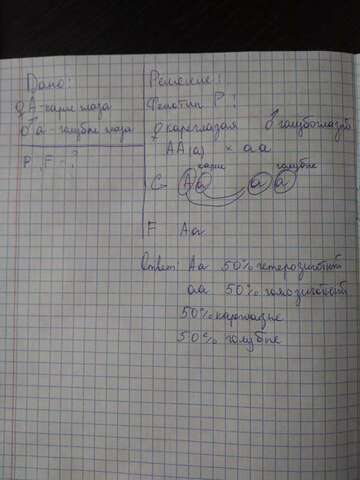 Дано:
♀ А - карие глаза
♂ а - голубые глаза
P, F - ?
Решение:
Фенотип P:
♀ кареглазая ♂ голубоглазый
АА(а) × аа
карие голубые
G А а а а
F Аа
Ответ: Аа 50% гетерозиготный
аа 50% гомозиготный
50% кареглазые
50% голубые